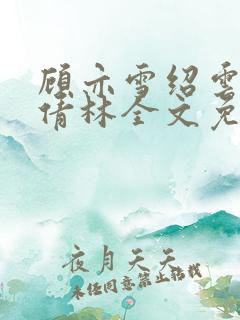 顾亦雪绍雲
倩林全文免
夜月天天
未经同意禁止转载